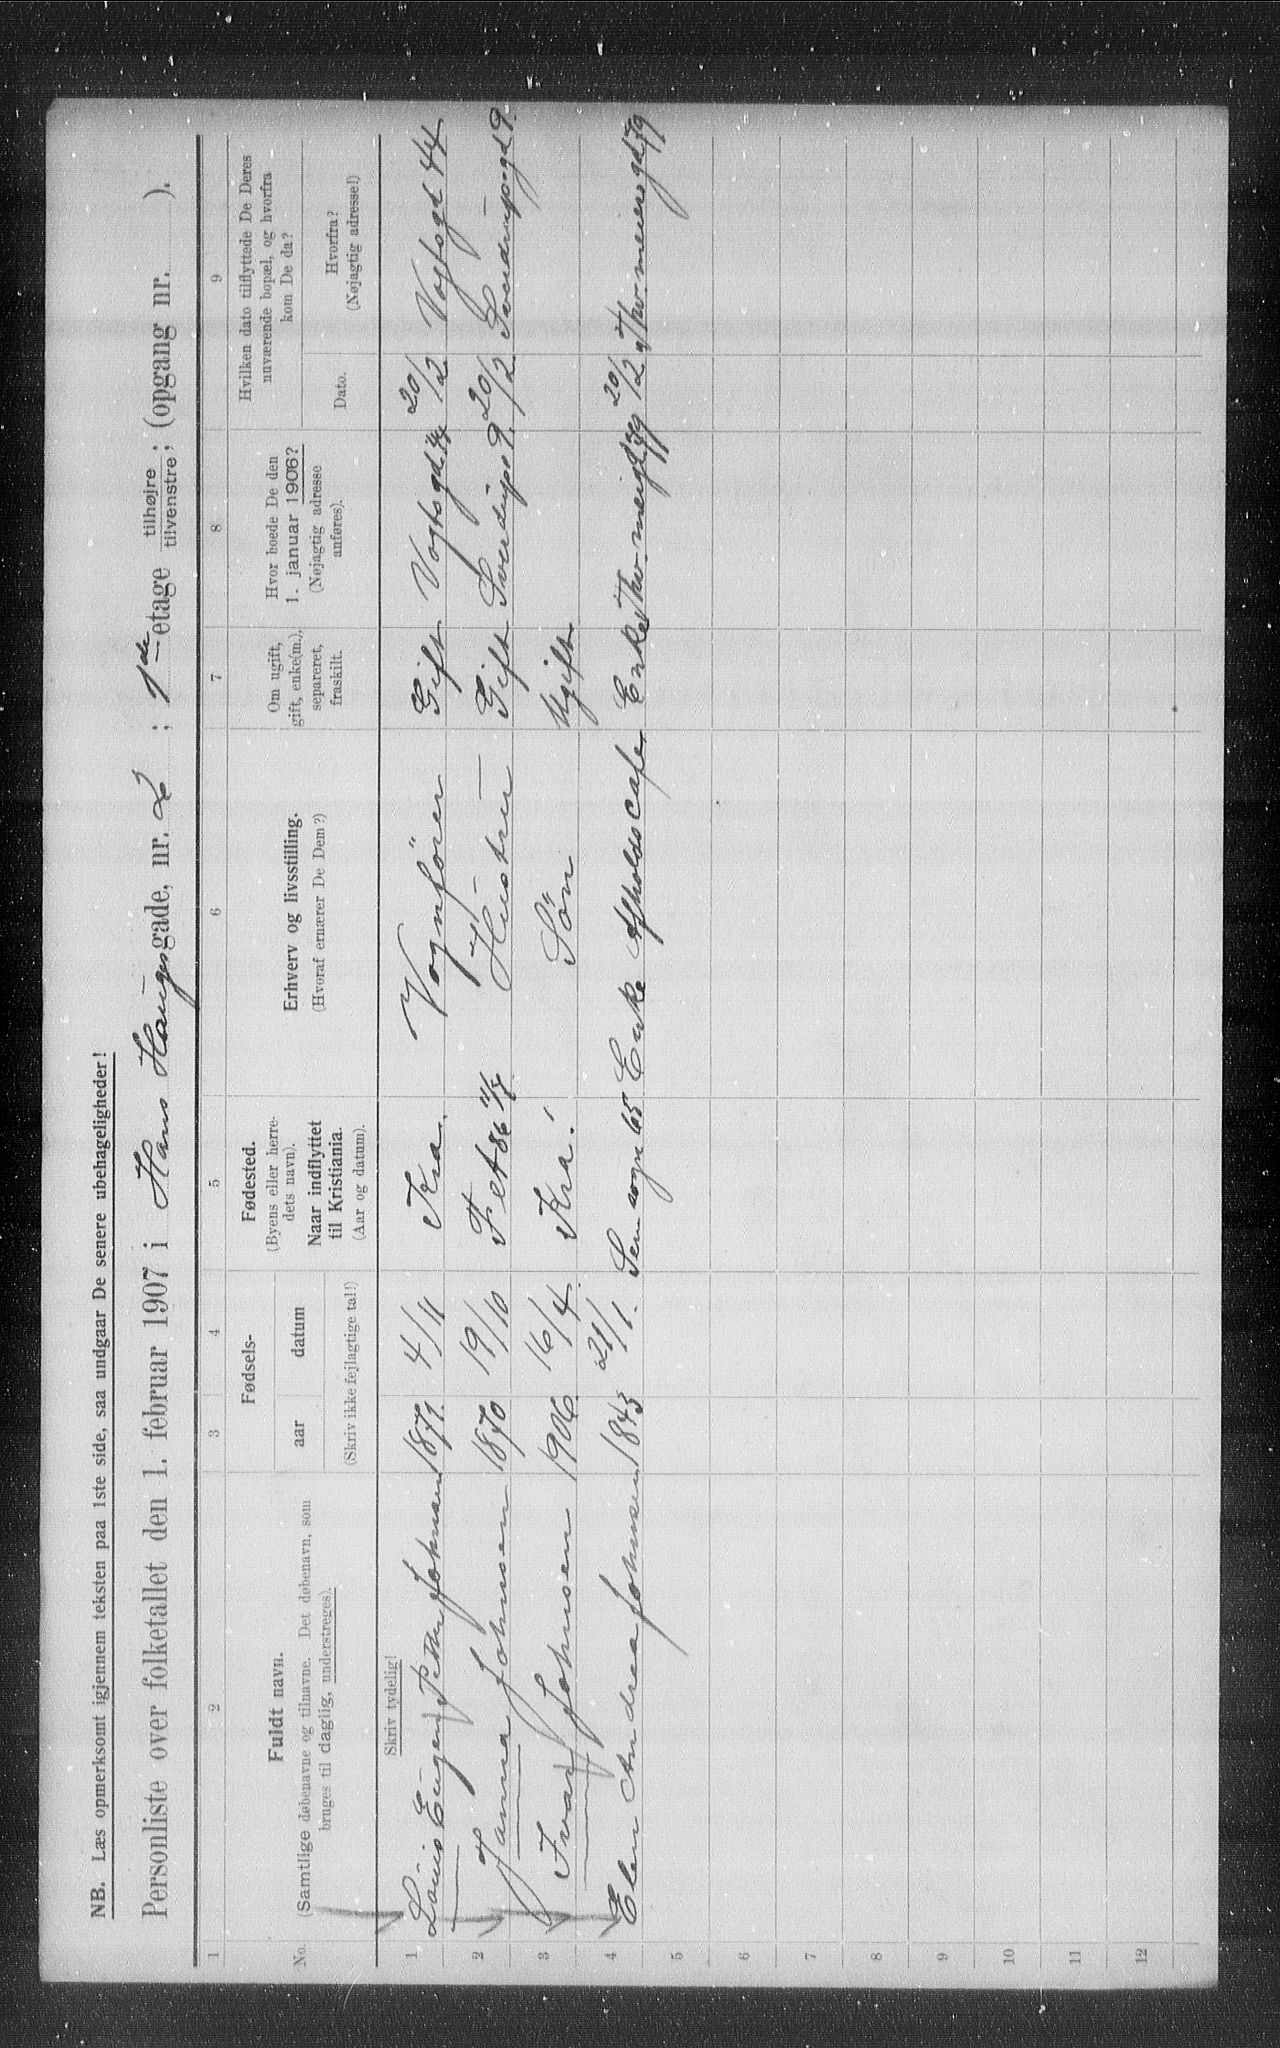 NB. Læs opmerksomt igjennem teksten paa 1ste side, saa undgaar De senere ubehageligheder!
Personliste over folketallet den 1. februar 1907 i Hans Haugesgade, nr. 2 ; 1de etage tilhøjre tilvenstre ; (opgang nr. ).
1 2 3 4 5 6 7 8 9
No.
Fuldt navn.
(Samtlige døbenavne og tilnavne. Det døbenavn, som
bruges til daglig, understreges).
Fødsels-
aar datum
(Skriv ikke fejlagtige tal!)
Fødested.
(Byens eller herre-
dets navn).
Naar indflyttet
til Kristiania.
(Aar og datum).
Erhverv og livsstilling.
(Hvoraf ernærer De Dem?)
Om ugift,
gift, enke(m.),
separeret,
fraskilt.
Hvor boede De den
1. januar 1906?
(Nøjagtig adresse
anføres).
Hvilken dato tilflyttede De Deres
nuværende bopæl, og hvorfra
kom De da?
Dato.
Hvorfra?
(Nøjagtig adresse!)
Skriv tydelig!
1 Louis Eugen Petter Johnsen 1871. 4/11 Kra. Vognfører Gift Vogtsgd 44 20/12 Vogtsgd 44
2 Janna Johnsen 1870 19/10 Fet 86 Hustru Gift Sverdrupsg 9. 20/12. Sverdrupsgd 9.
3 Ivar Johnsen 1906. 16/4. Kra. Søn Ugift
4 Elen Andrea Johnsen 1843 21/1. Sem sogn 65 Enke Afholdscafe Enke Thv. meiersgd 79 20/12 Thv. meiersgd 79
5
6
7
8
9
10
11
12